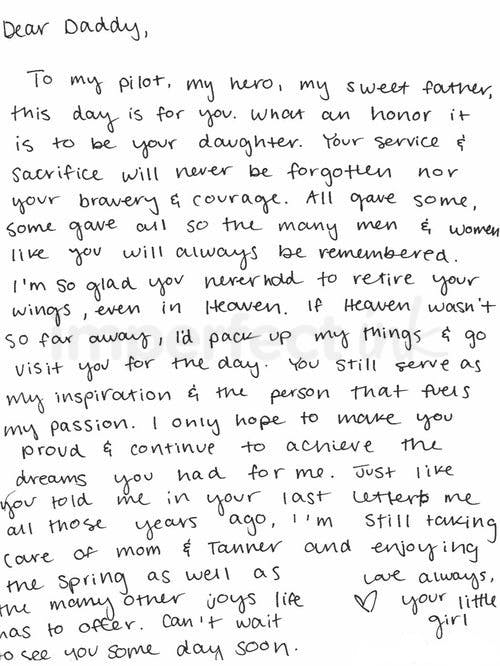 Dear Daddy,
To my pilot, my hero, my sweet father,
this day is for you. What an honor it
is to be your daughter. Your service &
sacrifice will never be forgotten nor
your bravery & courage. All gave some,
some gave all so the many men & women
like you will always be remembered.
I'm so glad you never had to retire your
wings, even in Heaven. If Heaven wasn't
so far away, I'd pack up my things & go
visit you for the day. You still serve as
my inspiration & the person that fuels
my passion. I only hope to make you
proud & continue to achieve the
dreams you had for me. Just like
you told me in your last letter to me
all those years ago, I'm still taking
care of mom & Tanner and enjoying
the spring as well as
the many other joys life
has to offer. Can't wait
to see you some day soon.
Love always,
♡ your little
girl